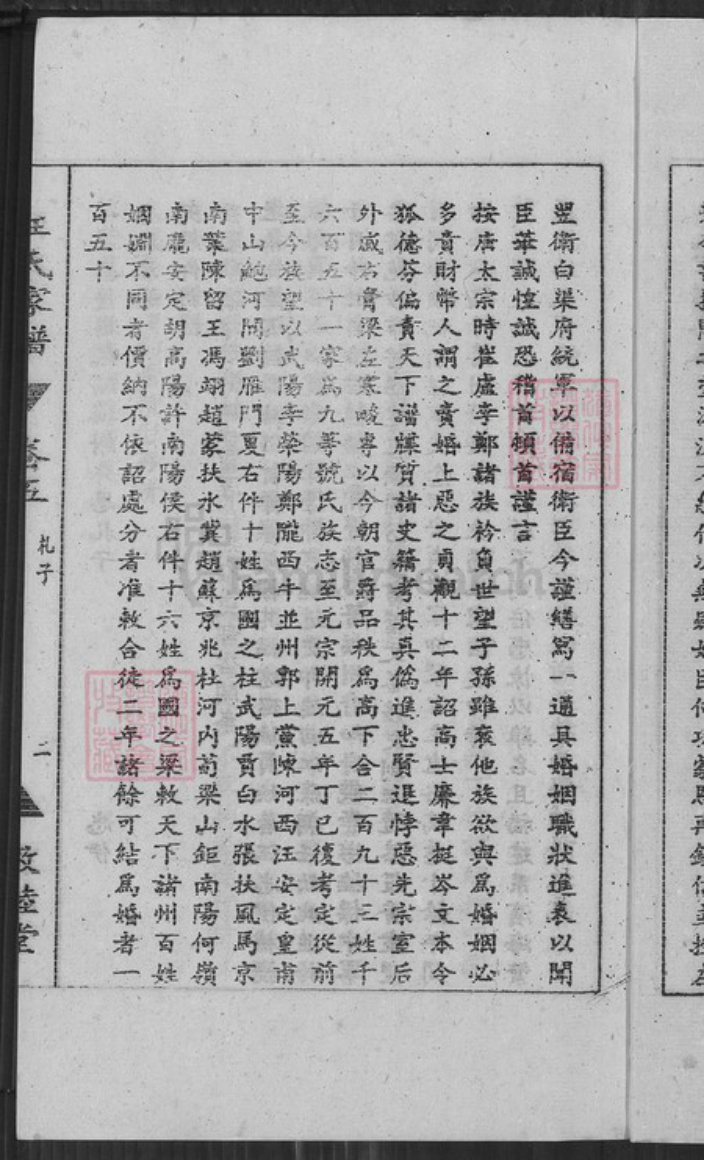 翌衛白渠府統軍以備宿衛臣今謹繕寫一通具婚姻職狀進表以聞
臣華誠惶誠恐稽首頓首謹言
按唐太宗時崔盧李鄭諸族衿負世望子孫雖衰他族欲與為婚姻必
多責財幣人謂之賣婚上惡之貞觀十二年詔高士廉韋挺岑文本令
狐德芬偏責天下譜牒質諸史籍考其真偽進忠賢退悖惡先宗室后
外戚右膏粱左寒畯専以今朝官爵品秩為高下合二百九十三姓千
六百五十一家為九等號氏族志至元宗開元五年丁巳復考定從前
至今族望以武陽李榮陽鄭隴西牛並州郭上黨陳河西汪安定皇甫
中山鮑河間劉雁門夏右件十姓為國之柱武陽賈白水張扶風馬京
南葉陳留王馮翊趙蒙扶水冀趙蘇京兆杜河内荀梁山鉅南陽何嶺
南龐安定胡高陽許南陽侯右件十六姓為國之梁敕天下諸州百姓
姻婣不同者價納不依詔處分者准敕合徒二年諸餘可結為婚者一
百五十
汪氏家譜
卷五
札子
二
敦睦堂